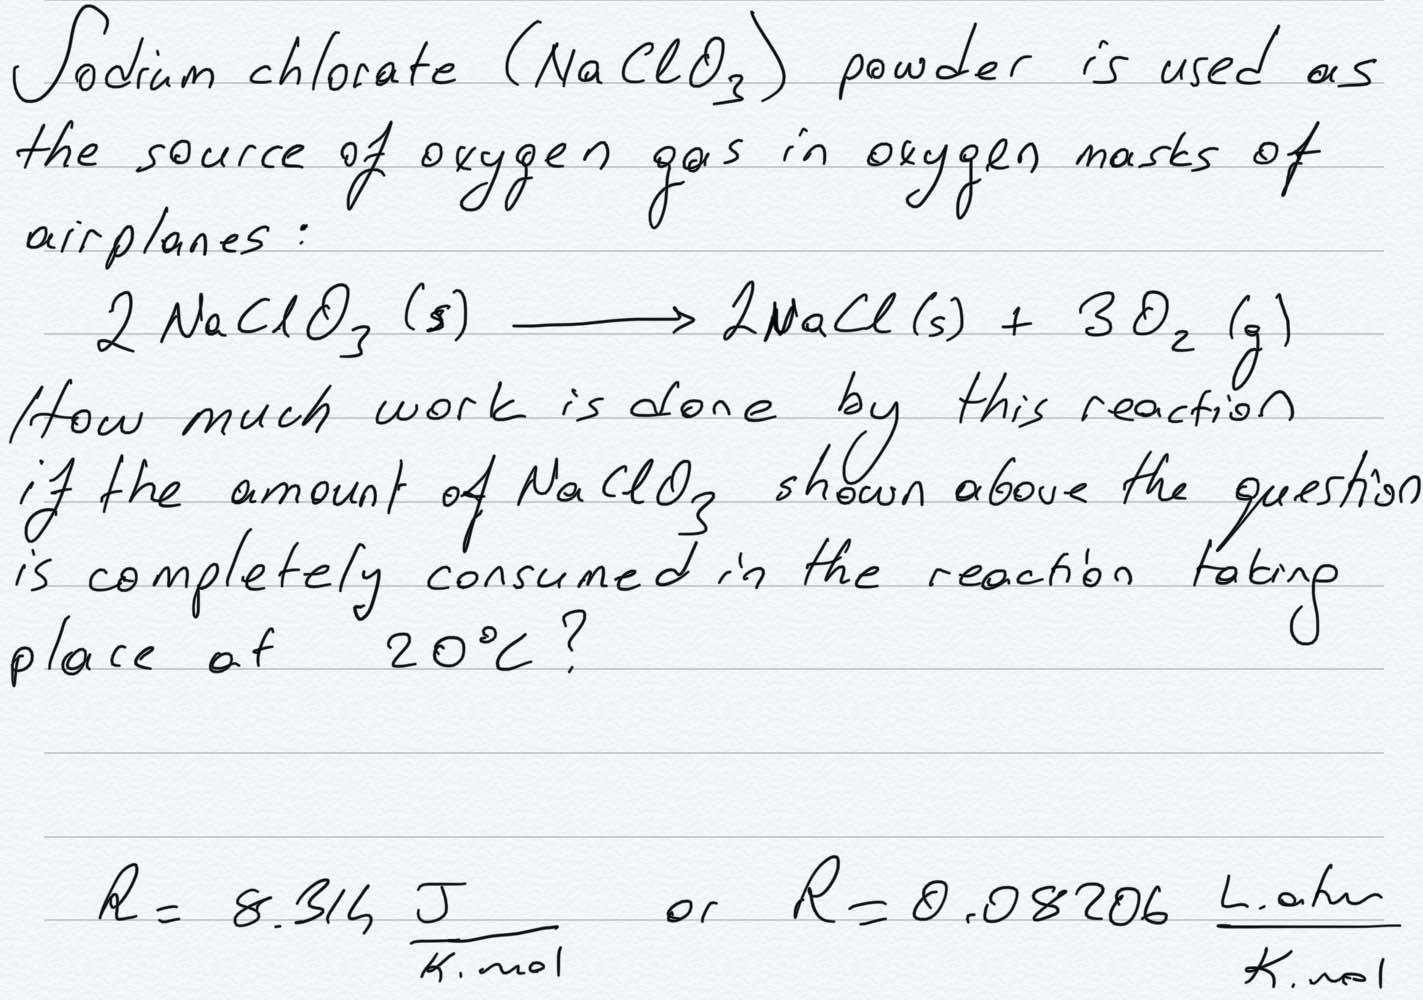 Sodium chlorate (NaClO3) powder is used as
the source of oxygen gas in oxygen masks of
airplanes:
2 NaClO3 (s) → 2 NaCl (s) + 3 O2 (g)
How much work is done by this reaction
if the amount of NaClO3 shown above the question
is completely consumed in the reaction taking
place at 20°C?
R = 8.314 J/K.mol or R = 0.08206 L.atm/K.mol